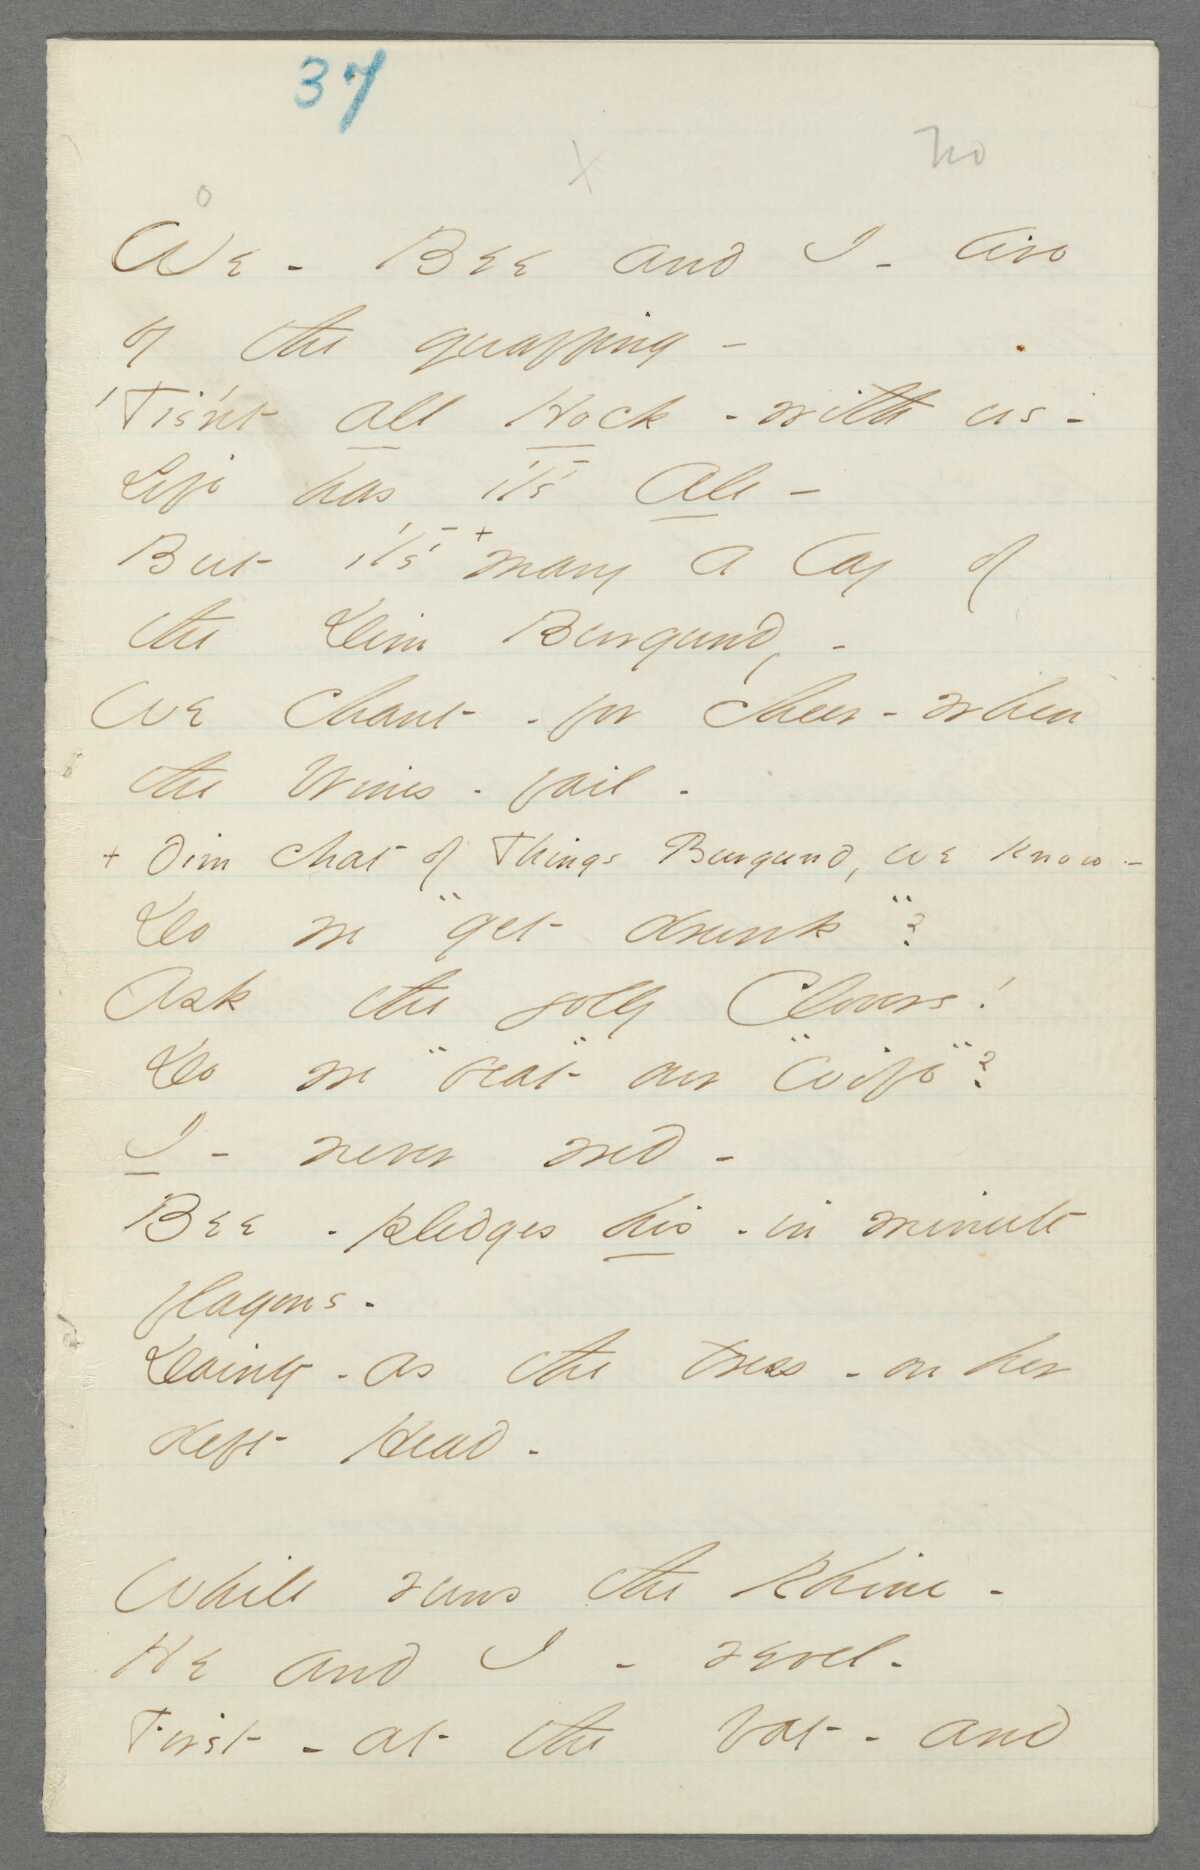 37
x
no
o
We - Bee and I - live
by the quaffing -
'Tis'nt all Hock - with us -
Life has it's Ale -
But it's + many a Lay of
the Dim Burgundy -
We chant - for cheer - when
the Wines - fail -
+ Dim chat of Things Burgund, we know -
Do we "get drunk"?
Ask the jolly Clovers!
Do we "beat" our "Wife"?
I - never wed -
Bee - pledges his - in minute
flagons -
Dainty - as the tress - on her
deft Head -
While runs the Rhine -
He and I - revel -
First - at the Vat - and